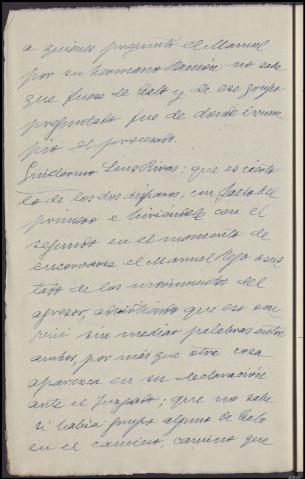 a quienes preguntó el Manuel
por su hermano Ramón no sabe
que fuese de Lalo y de ese grupo
preguntado fue de donde irrum-
pió el procesado.
Guillermo Leus Rivas: que es cierto
lo de los dos disparos, con fallo del
primero e hiriéndole con el
segundo en el momento de
encorvarse el Manuel Rejo asus-
tado de los movimientos del
agresor, advirtiendo que eso ocu-
rrió sin mediar palabras entre
ambos, por más que otra cosa
aparezca en su declaración
ante el Juzgado; que no sabe
si había grupo alguno de Lalo
en el camino, camino que